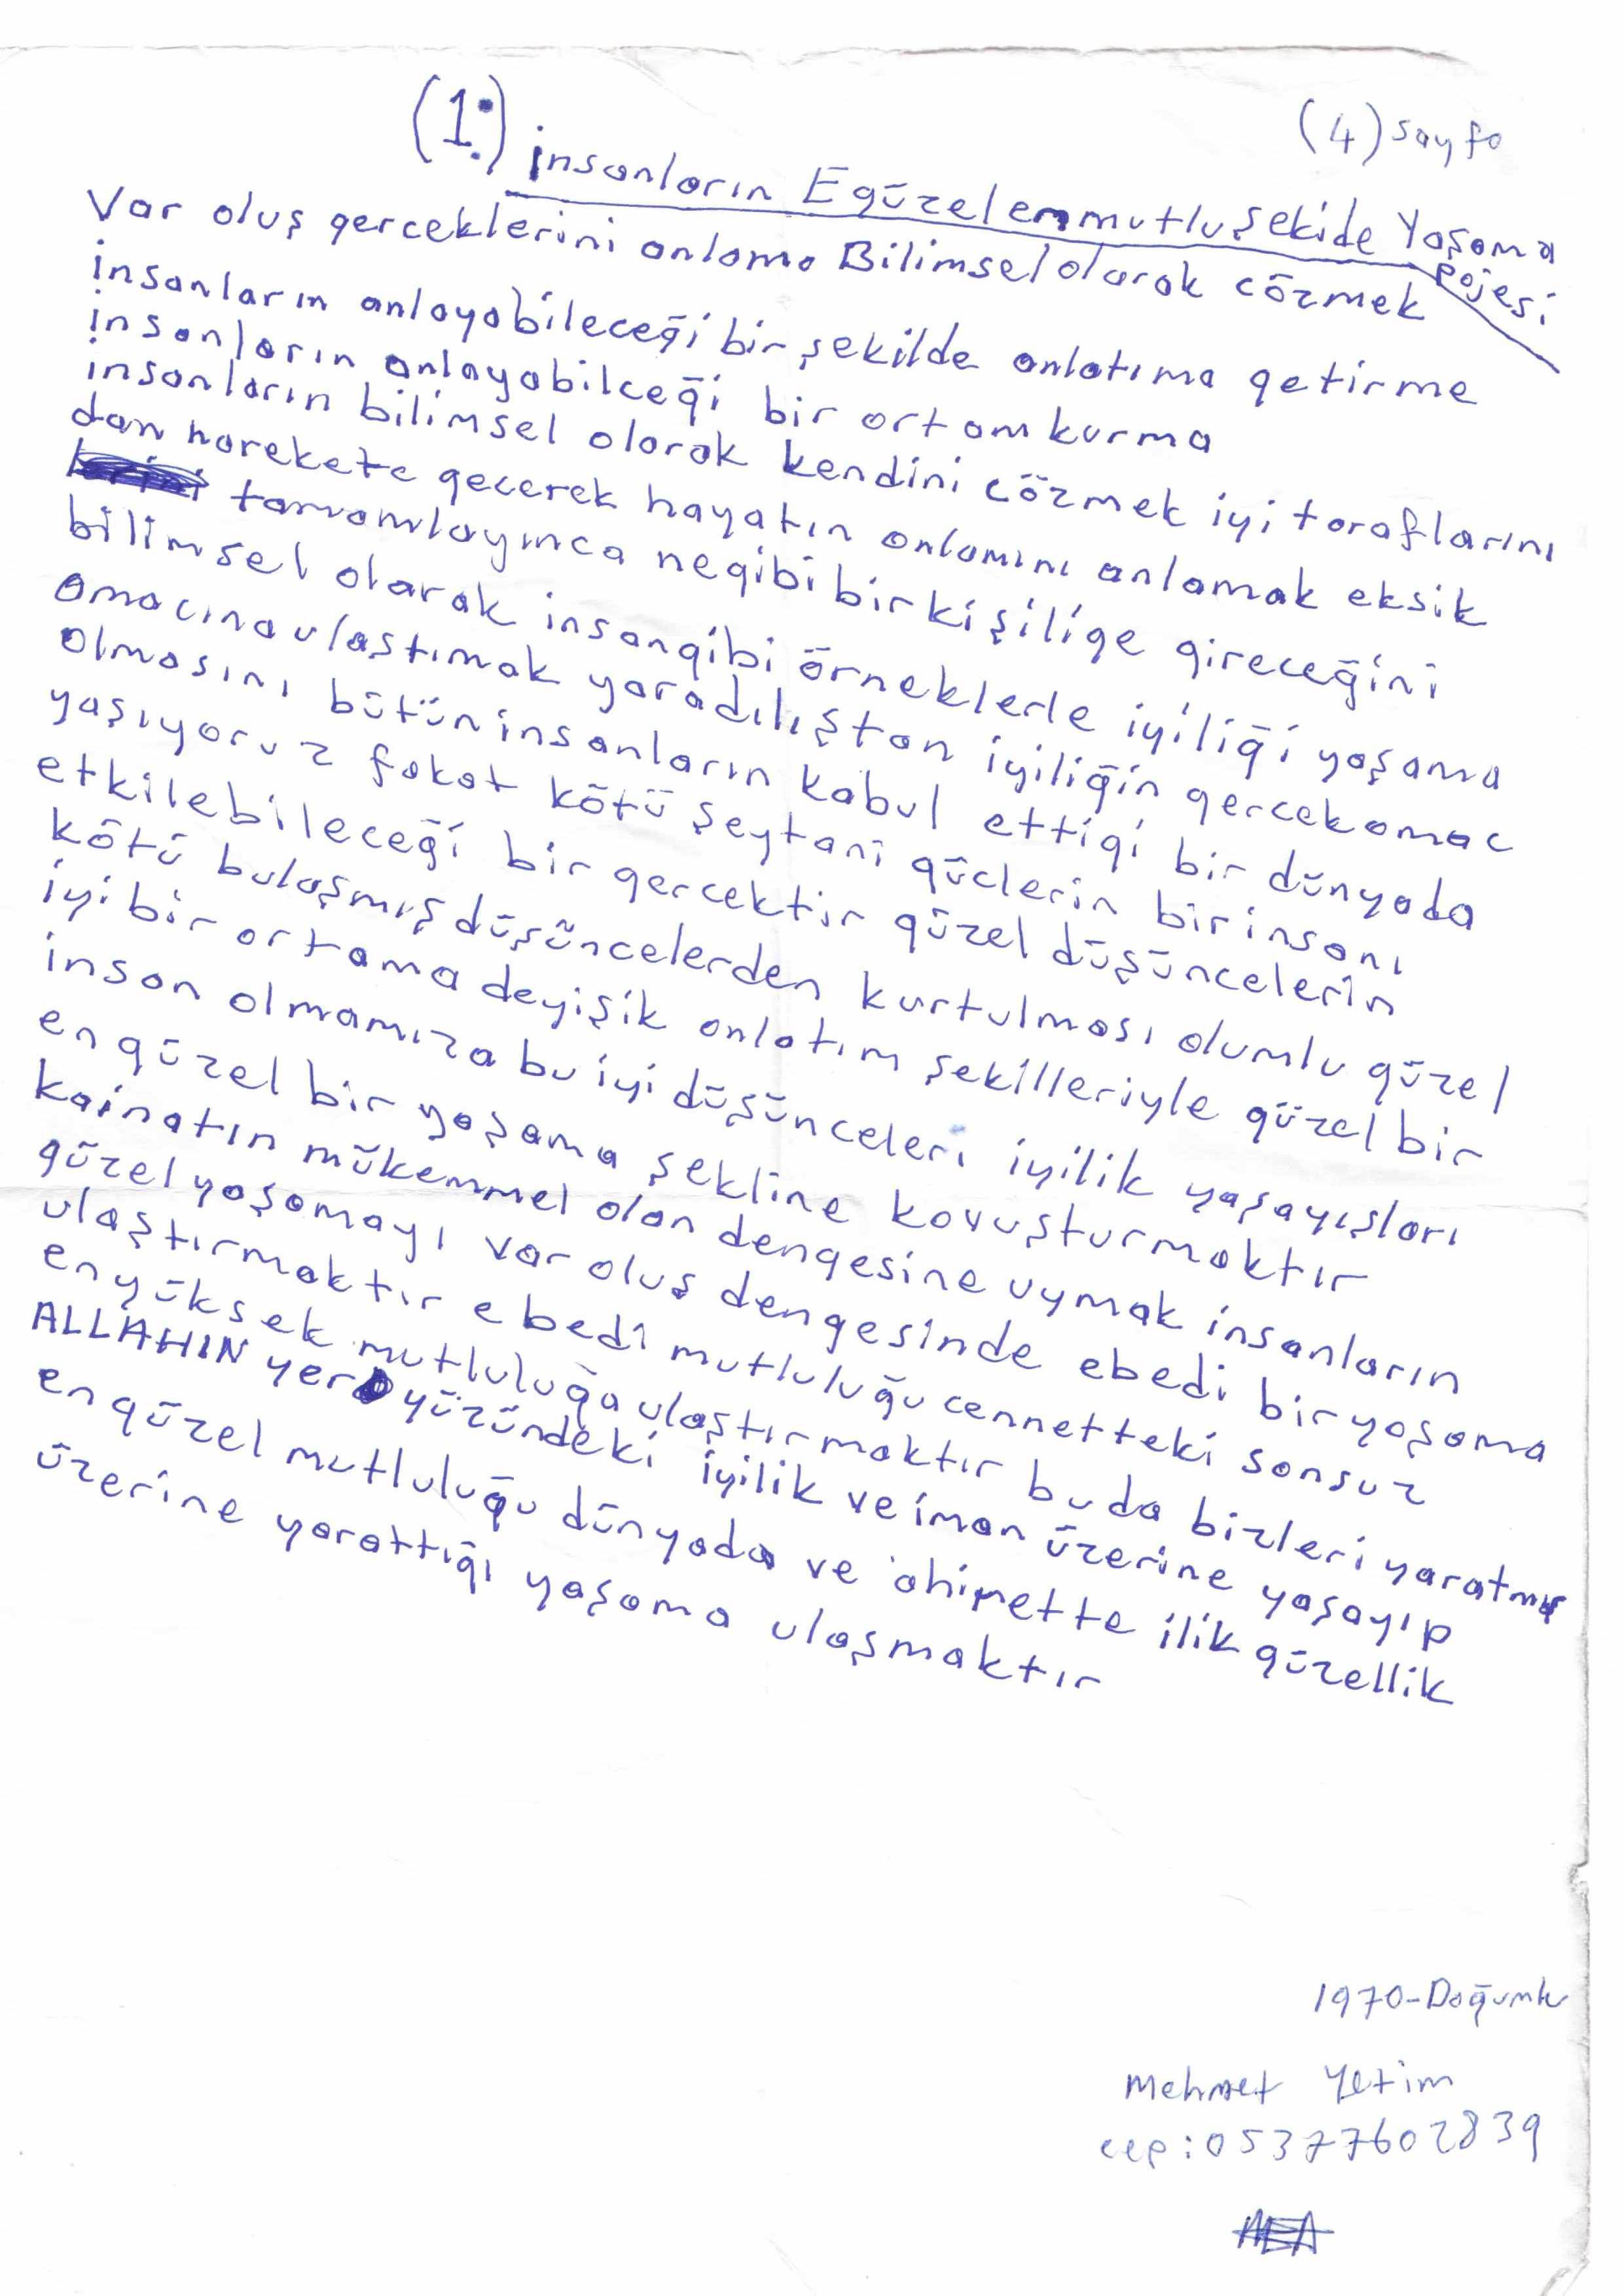 (1.) (4) sayfa
insanların Egüzel enmutlu şekide Yaşama
pojesi
Var oluş gerceklerini anlama Bilimsel olarak cözmek
insanların anlayabileceği bir şekilde anlatıma getirme
insanların anlayabilceği bir ortam kurma
insanların bilimsel olarak kendini cözmek iyi taraflarını
dan harekete gecerek hayatın anlamını anlamak eksik
tamamlayınca negibi bir kişilige gireceğini
bilimsel olarak insangibi örneklerle iyiliği yaşama
amacına ulastımak yaradılıştan iyiliğin gercek amac
olmasını bütün insanların kabul ettigi bir dünyada
yaşıyoruz fakat kötü şeytani güclerin bir insanı
etkilebileceği bir gercektir güzel düşüncelerin
kötü bulaşmış düşüncelerden kurtulması olumlu güzel
iyi bir ortama deyişik anlatım şekilleriyle güzel bir
insan olmamıza bu iyi düşünceleri iyilik yaşayışları
en güzel bir yaşama şekline kavuşturmaktır
kainatın mükemmel olan dengesine uymak insanların
güzel yaşamayı var oluş dengesinde ebedi bir yaşama
ulaştırmaktır ebedi mutluluğu cennetteki sonsuz
en yüksek mutluluğa ulaştırmaktır bu da bizleri yaratmış
ALLAHIN yer yüzündeki iyilik ve iman üzerine yaşayıp
en güzel mutluluğu dünyada ve ahirette ilik güzellik
üzerine yarattığı yaşama ulaşmaktır
1970-Doğumlu
Mehmet Yetim
cep: 05377602839